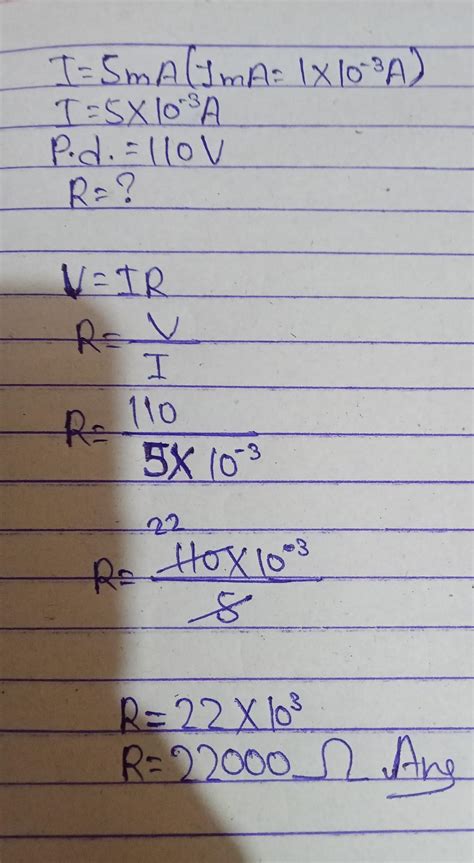 I=5mA(1mA=1×10⁻³A)
I=5×10⁻³A
P.d.=110V
R=?
V=IR
R=V/I
R=110/5×10⁻³
22
R=110×10⁻³/5
R=22×10³
R=22000Ω Ans